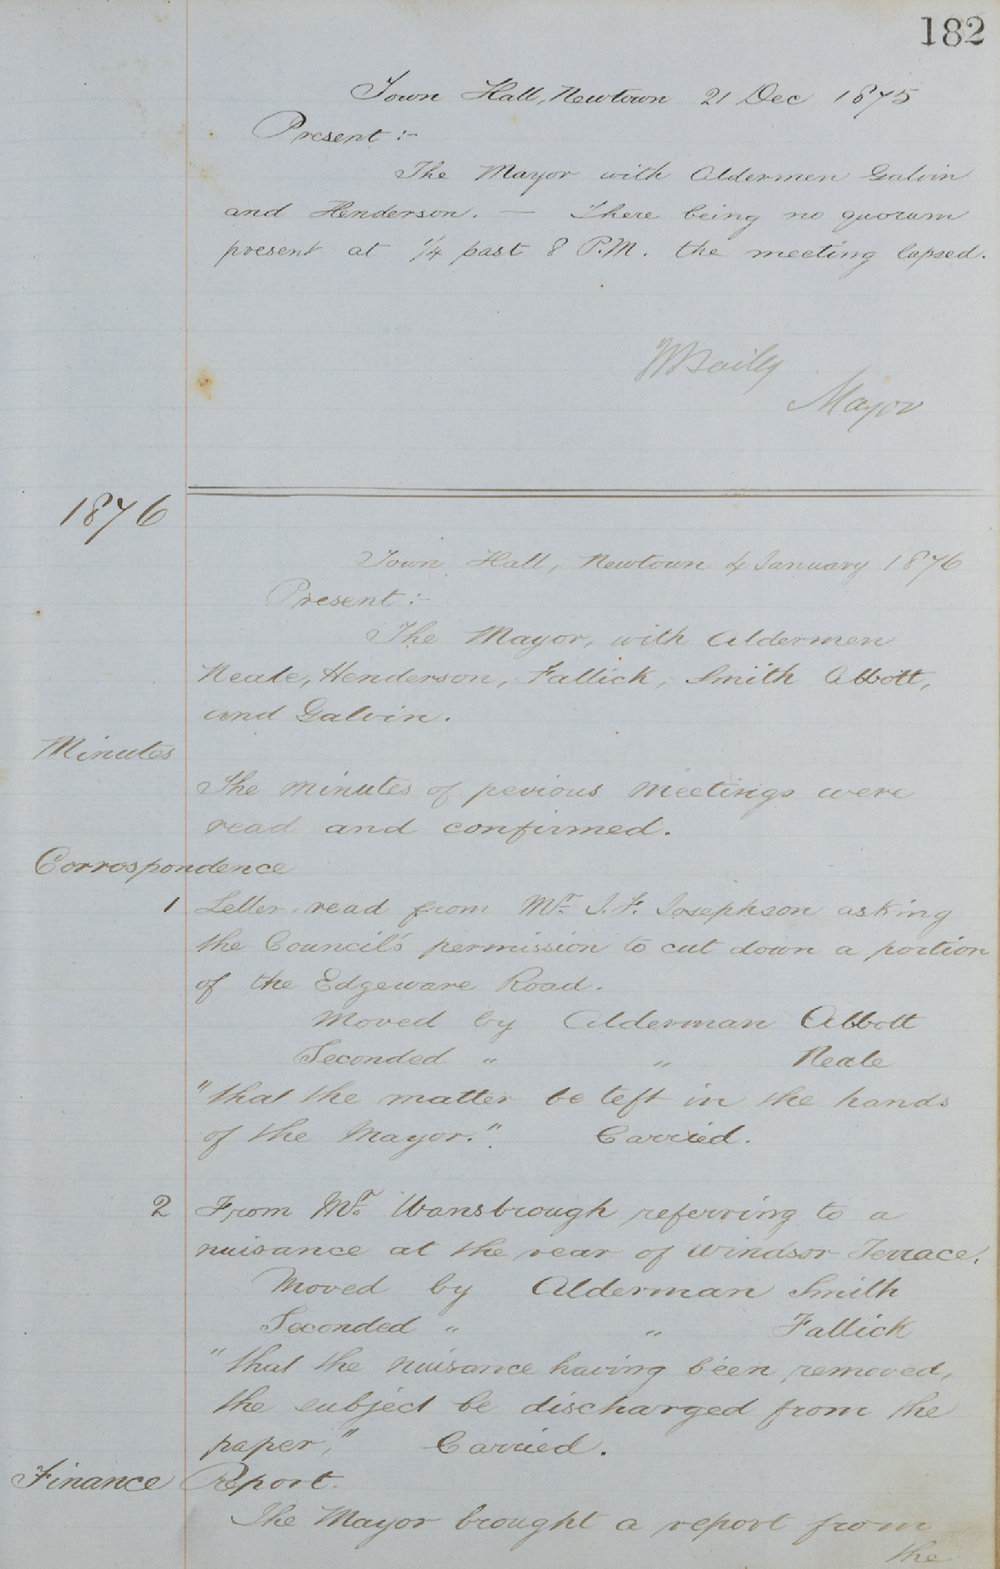 182
Town Hall, Newtown 21 Dec 1875
Present :-
The Mayor with Aldermen Galvin
and Henderson. — There being no quorum
present at 1/4 past 8 P.M. the meeting lapsed.
Bailey
Mayor
1876
Town Hall, Newtown 4 January 1876
Present :-
The Mayor, with Aldermen
Neale, Henderson, Fallick, Smith Abbott,
and Galvin.
Minutes
The minutes of pevious meetings were
read and confirmed.
Correspondence
1 Letter read from Mr. J. F. Josephson asking
the Council's permission to cut down a portion
of the Edgeware Road.
Moved by Alderman Abbott
Seconded " " Neale
"that the matter be left in the hands
of the Mayor." Carried.
2 From Mr. Wansbrough referring to a
nuisance at the rear of Windsor Terrace.
Moved by Alderman Smith
Seconded " " Fallick
"that the nuisance having been removed,
the subject be discharged from the
paper," Carried.
Finance Report.
The Mayor brought a report from
the